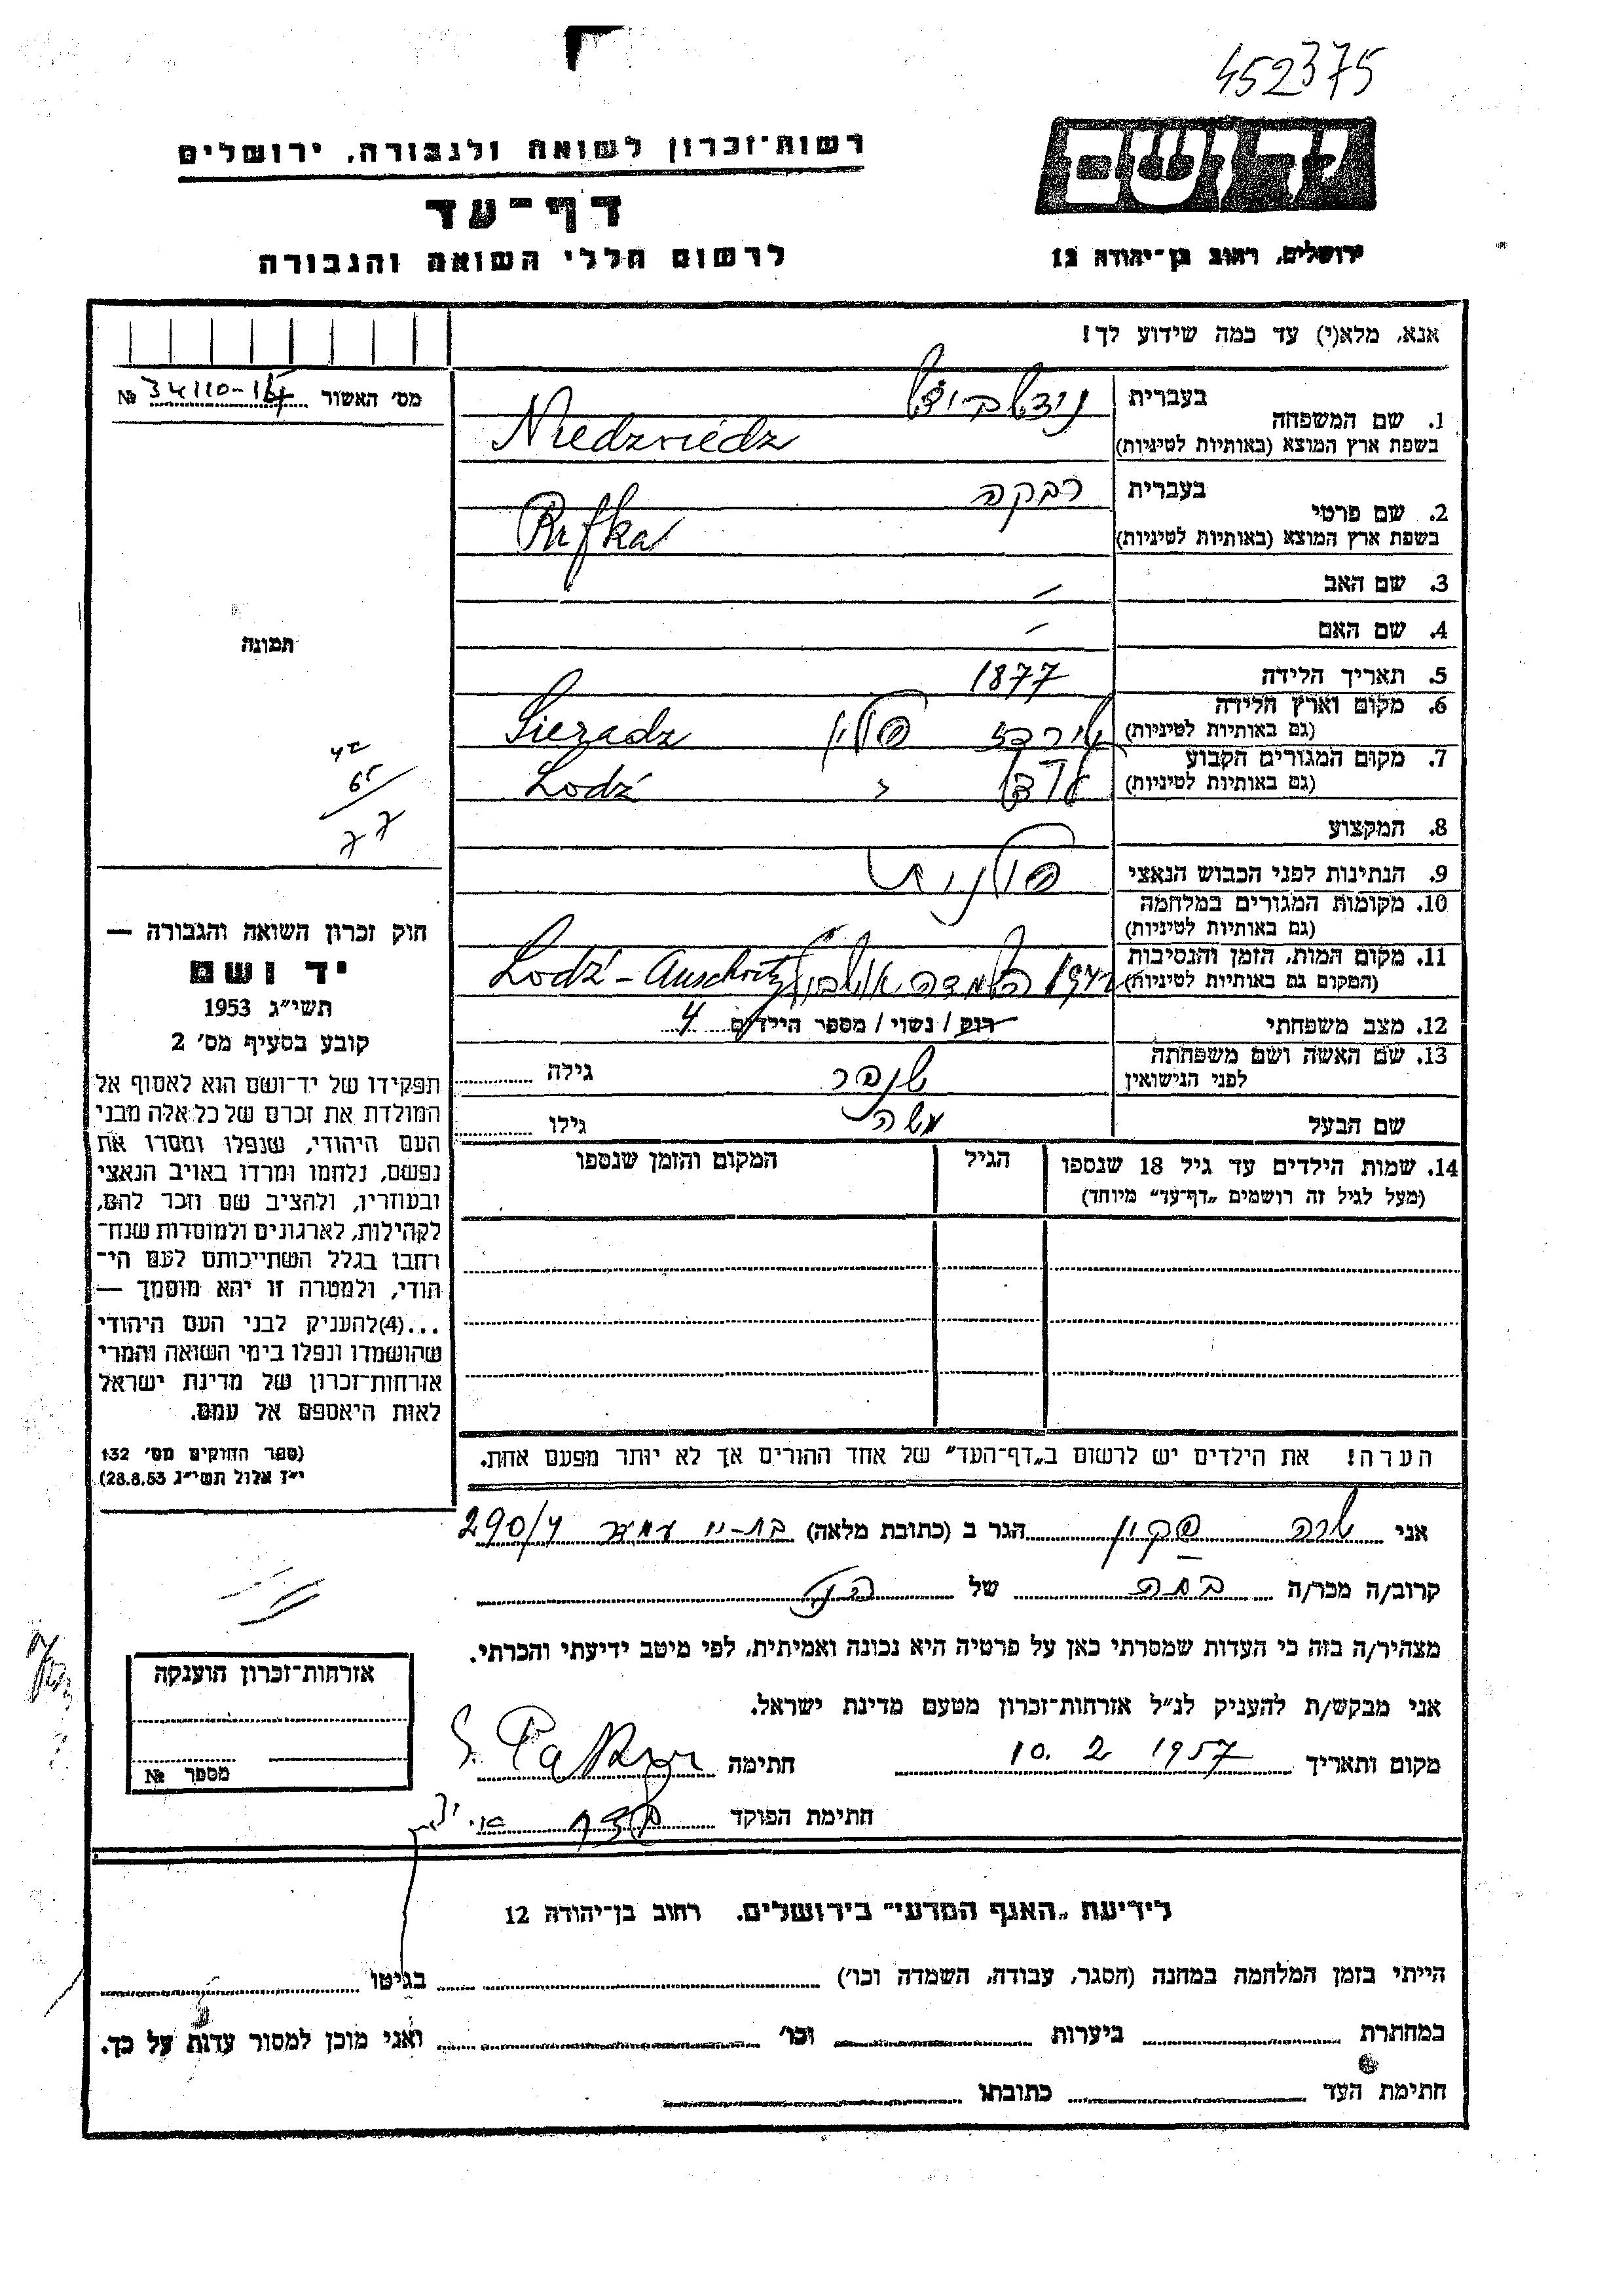 452375
יד ושם
רשות־זכרון לשואה ולגבורה, ירושלים
דף־עד
לרשום חללי השואה והגבורה
ירושלים, רחוב בן־יהודה 12
אנא, מלא(י) עד כמה שידוע לך!
מס' האשור № 34110-167
1. שם המשפחה בעברית
בשפת ארץ המוצא (באותיות לטיניות) Niedzwiedz
2. שם פרטי בעברית רבקה
בשפת ארץ המוצא (באותיות לטיניות) Rifka
3. שם האב –
4. שם האם –
5. תאריך הלידה 1877
6. מקום וארץ הלידה
(גם באותיות לטיניות) שירדז פולין Sieradz
7. מקום המגורים הקבוע
(גם באותיות לטיניות) לודז' " Lodź
8. המקצוע
9. הנתינות לפני הכבוש הנאצי פולנית
10. מקומות המגורים במלחמה
(גם באותיות לטיניות)
11. מקום המות, הזמן והנסיבות
(המקום גם באותיות לטיניות) 1942 Lodź – Auschwitz
12. מצב משפחתי רוק / נשוי / מספר הילדים 4
13. שם האשה ושם משפחתה
לפני הנישואין גילה
שם הבעל משה גילו
14. שמות הילדים עד גיל 18 שנספו
(מעל לגיל זה רושמים „דף־עד" מיוחד)
הגיל
המקום והזמן שנספו
הערה! את הילדים יש לרשום ב„דף־העד" של אחד ההורים אך לא יותר מפעם אחת.
תמונה
42
65
77
חוק זכרון השואה והגבורה —
יד ושם
תשי"ג 1953
קובע בסעיף מס' 2
תפקידו של יד־ושם הוא לאסוף אל
המולדת את זכרם של כל אלה מבני
העם היהודי, שנפלו ומסרו את
נפשם, נלחמו ומרדו באויב הנאצי
ובעוזריו, ולהציב שם וזכר להם,
לקהילות, לארגונים ולמוסדות שנח־
רבו בגלל השתייכותם לעם הי־
הודי, ולמטרה זו יהא מוסמך —
...(4)להעניק לבני העם היהודי
שהושמדו ונפלו בימי השואה והמרי
אזרחות־זכרון של מדינת ישראל
לאות היאספם אל עמם.
(ספר החוקים מס' 132
י"ז אלול תשי"ג 28.8.53)
אני שרה פקין הגר ב (כתובת מלאה) בת-ים עמידר 290/4
קרוב/ה מכר/ה של
מצהיר/ה בזה כי העדות שמסרתי כאן על פרטיה היא נכונה ואמיתית, לפי מיטב ידיעתי והכרתי.
אני מבקש/ת להעניק לנ"ל אזרחות־זכרון מטעם מדינת ישראל.
מקום ותאריך 10. 2 1957 חתימה
חתימת הפוקד
אזרחות־זכרון הוענקה
מספר №
לידיעת „האגף המדעי" בירושלים, רחוב בן־יהודה 12
הייתי בזמן המלחמה במחנה (הסגר, עבודה, השמדה וכו') בגיטו
במחתרת ביערות וכו' ואני מוכן למסור עדות על כך.
חתימת העד כתובתו